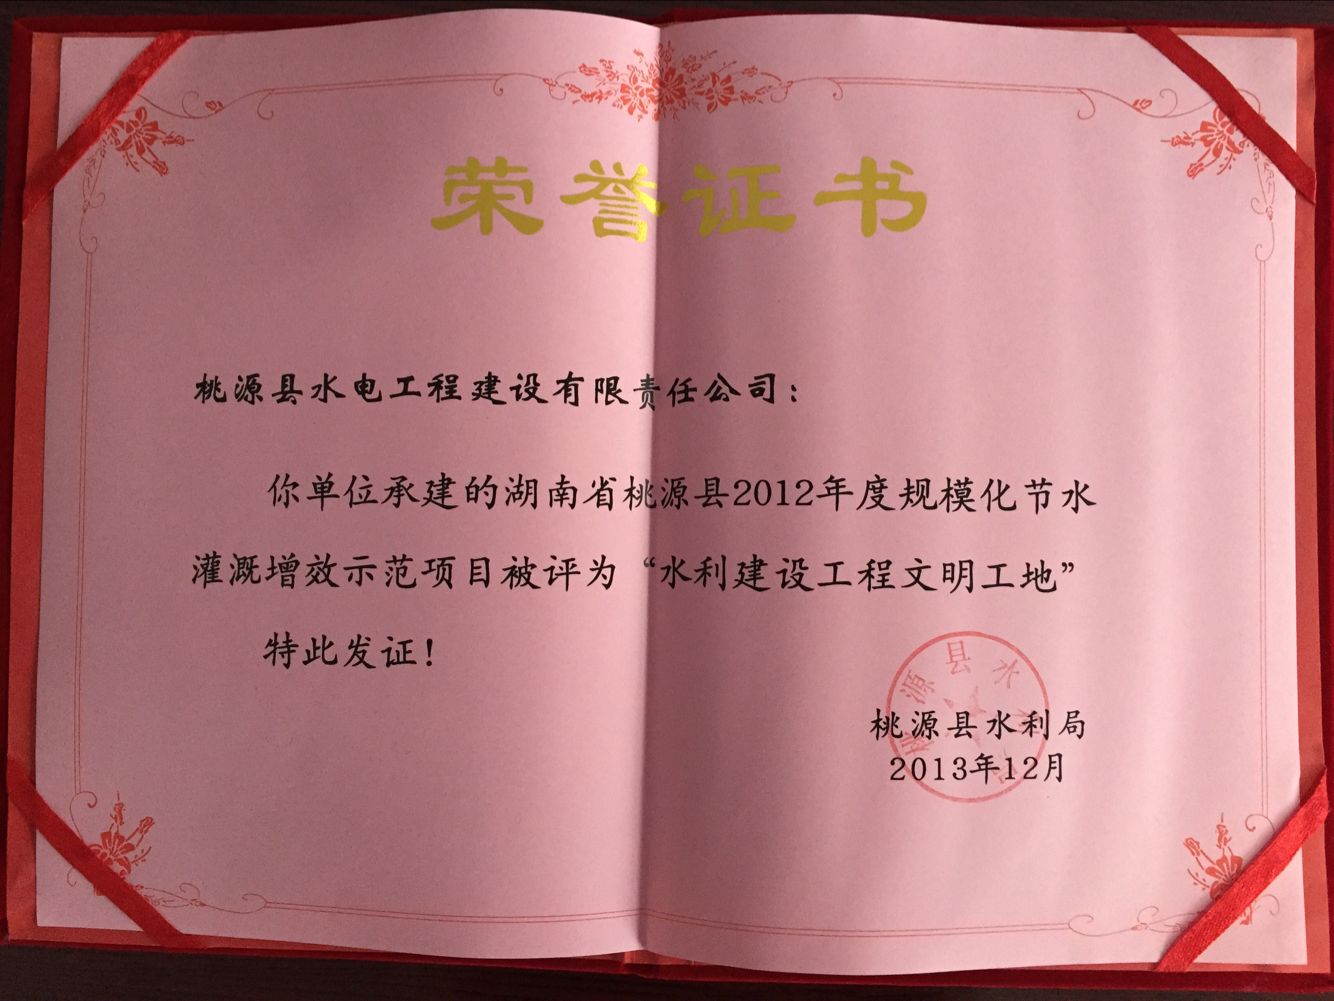 荣誉证书
桃源县水电工程建设有限责任公司：
你单位承建的湖南省桃源县2012年度规模化节水
灌溉增效示范项目被评为“水利建设工程文明工地”
特此发证！
桃源县水
桃源县水利局
2013年12月